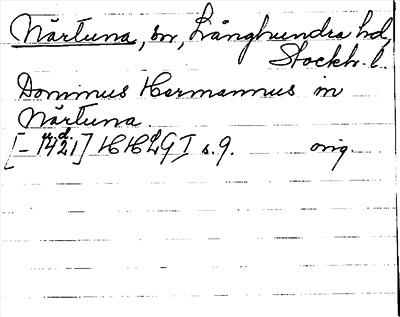 Närtuna, sn, Långhundra hd,
Stockh. l.
Dominus Hormannus in
Närtuna.
n.d.
[-1421] HHLG I s. 9. orig.